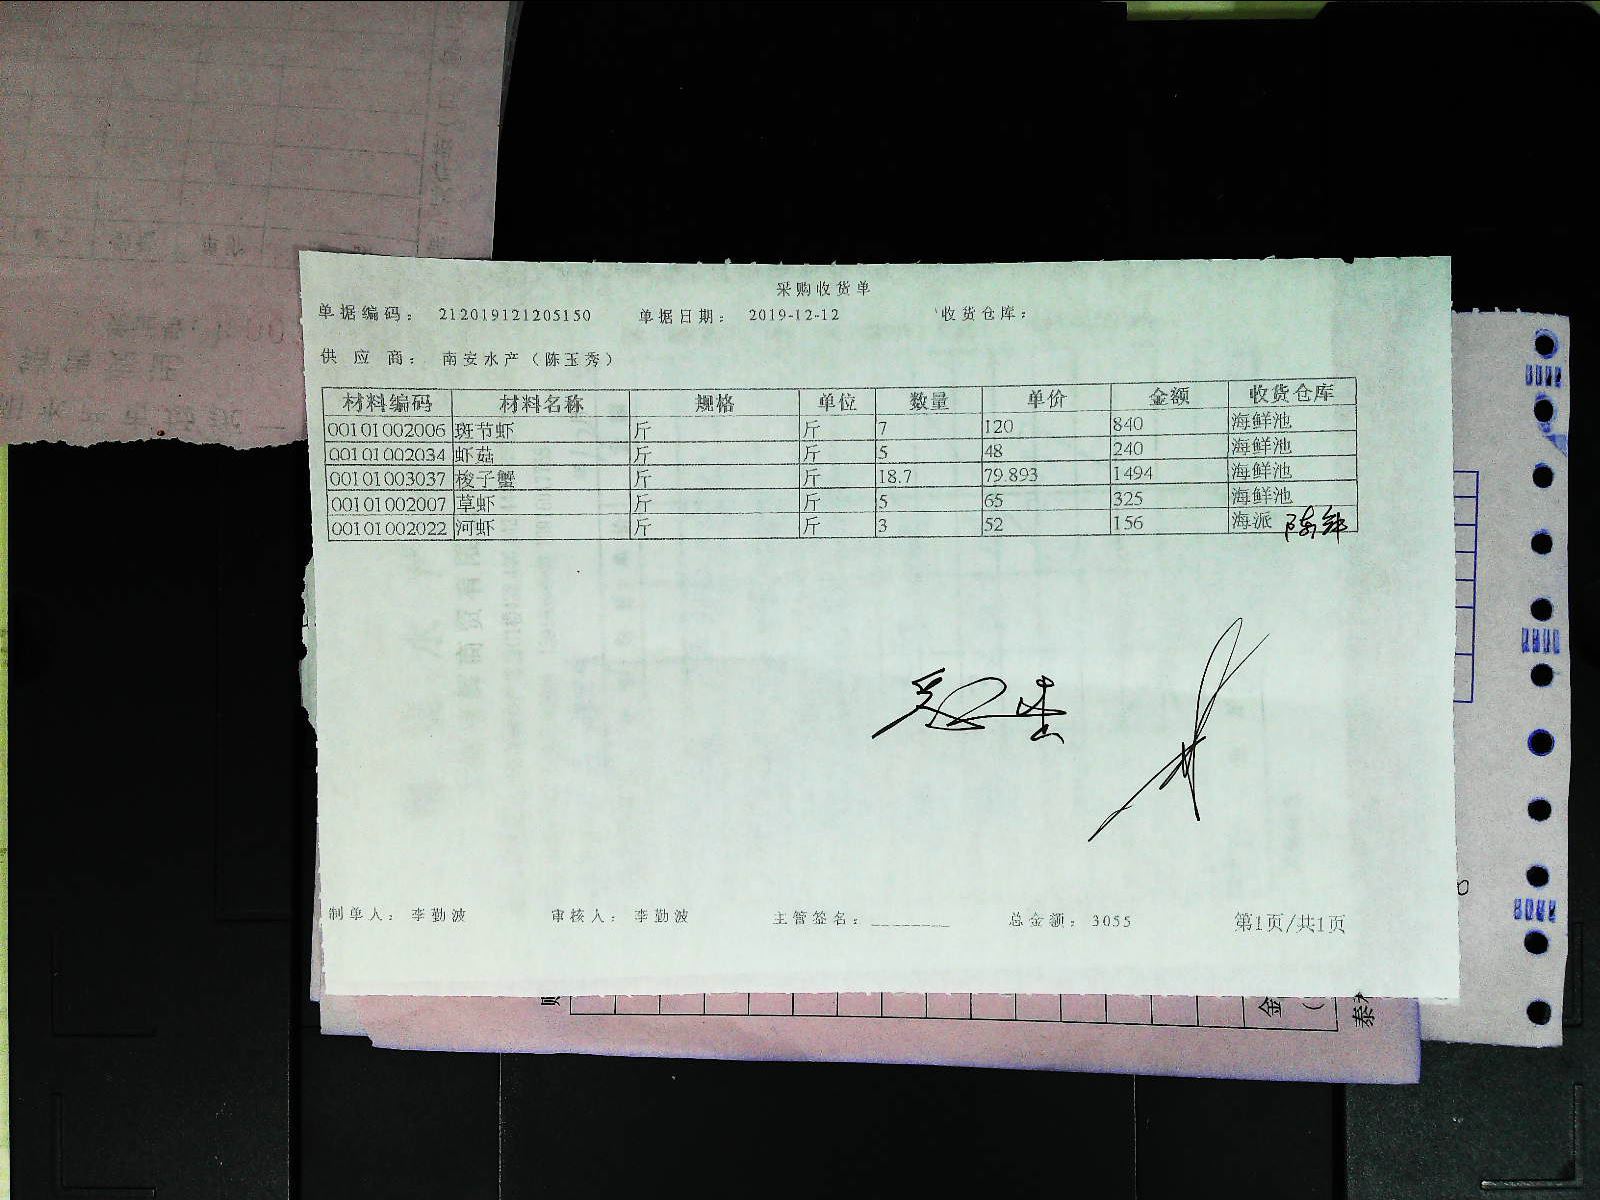 采购收货单
单据编码： 212019121205150 单据日期： 2019-12-12 收货仓库：
供应商： 南安水产（陈玉秀）
材料编码 材料名称 规格 单位 数量 单价 金额 收货仓库
00101002006 斑节虾 斤 斤 7 120 840 海鲜池
00101002034 虾菇 斤 斤 5 48 240 海鲜池
00101003037 梭子蟹 斤 斤 18.7 79.893 1494 海鲜池
00101002007 草虾 斤 斤 5 65 325 海鲜池
00101002022 河虾 斤 斤 3 52 156 海派
制单人： 李勤波 审核人： 李勤波 主管签名：________ 总金额： 3055 第1页/共1页
金
泰